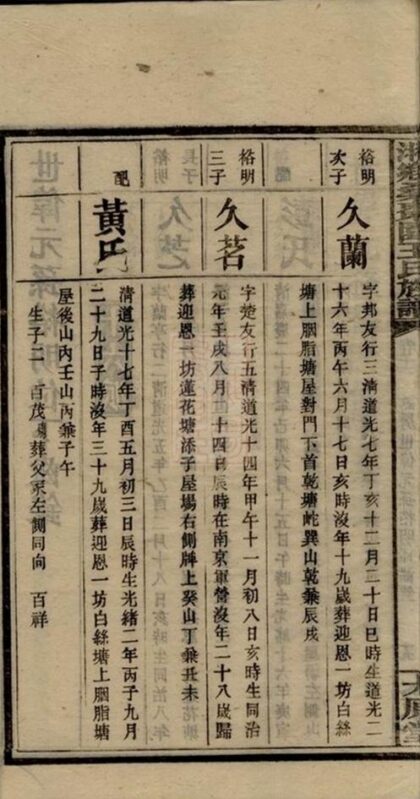 王氏族譜
裕明
次子
久蘭
字邦友行三清道光七年丁亥十二月二十日巳時生道光二
十六年丙午六月十七日亥時沒年十九歲葬迎恩一坊白絲
塘上胭脂塘屋對門下首乾塘巽山乾兼辰戌
三子
久茗
字楚友行五清道光十四年甲午十一月初八日亥時生同治
元年壬戌八月一十四日辰時在南京軍營沒年二十八歲歸
葬迎恩一坊蓮花塘添子屋場右側牌上癸山丁兼丑未
配
黃氏
清道光十七年丁酉五月初三日辰時生光緒二年丙子九月
二十九日子時沒年三十九歲葬迎恩一坊白絲塘上胭脂塘
屋後山丙壬山丙兼子午
生子二 百茂殤葬父冢左側同向 百祥